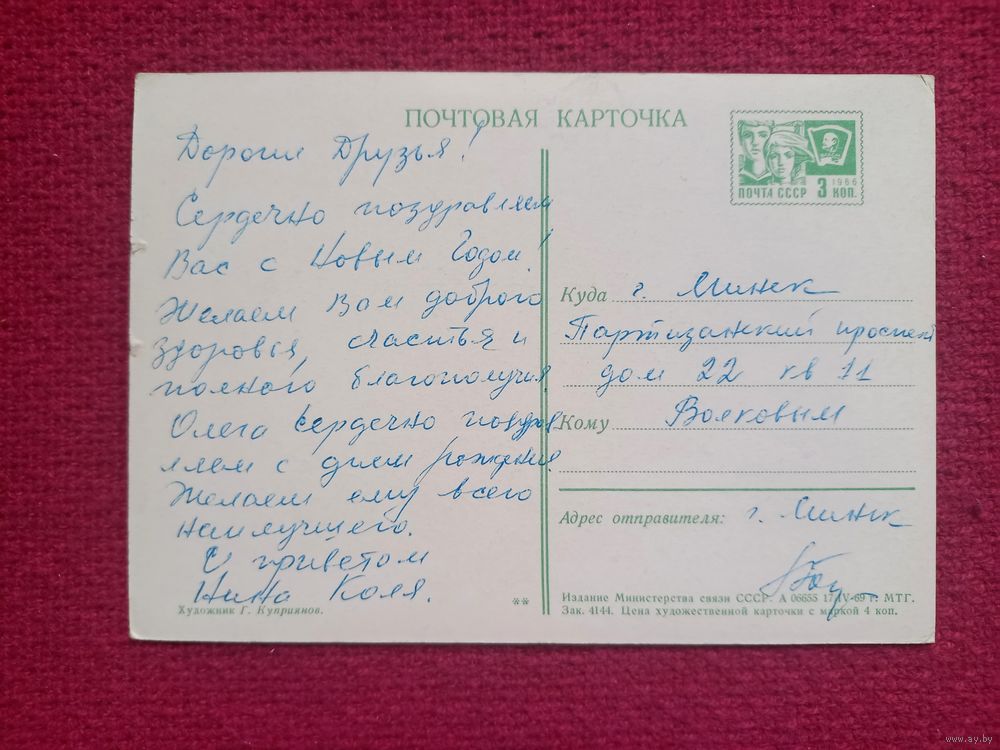 ПОЧТОВАЯ КАРТОЧКА
ПОЧТА СССР 3 КОП. 1966
Дорогие Друзья!
Сердечно поздравляем
Вас с Новым Годом!
Желаем Вам доброго
здоровья, счастья и
полного благополучия.
Олега сердечно поздрав
ляем с днем рождения
Желаем ему всего
наилучшего.
С приветом
Нина Коля.
Художник Г. Куприянов.
**
Куда г. Минск
Партизанский проспект
дом 22 кв 11
Кому Волковым
Адрес отправителя: г. Минск
Издание Министерства связи СССР. А 06655 17/IV-69 г. МТГ.
Зак. 4144. Цена художественной карточки с маркой 4 коп.
www.ay.by